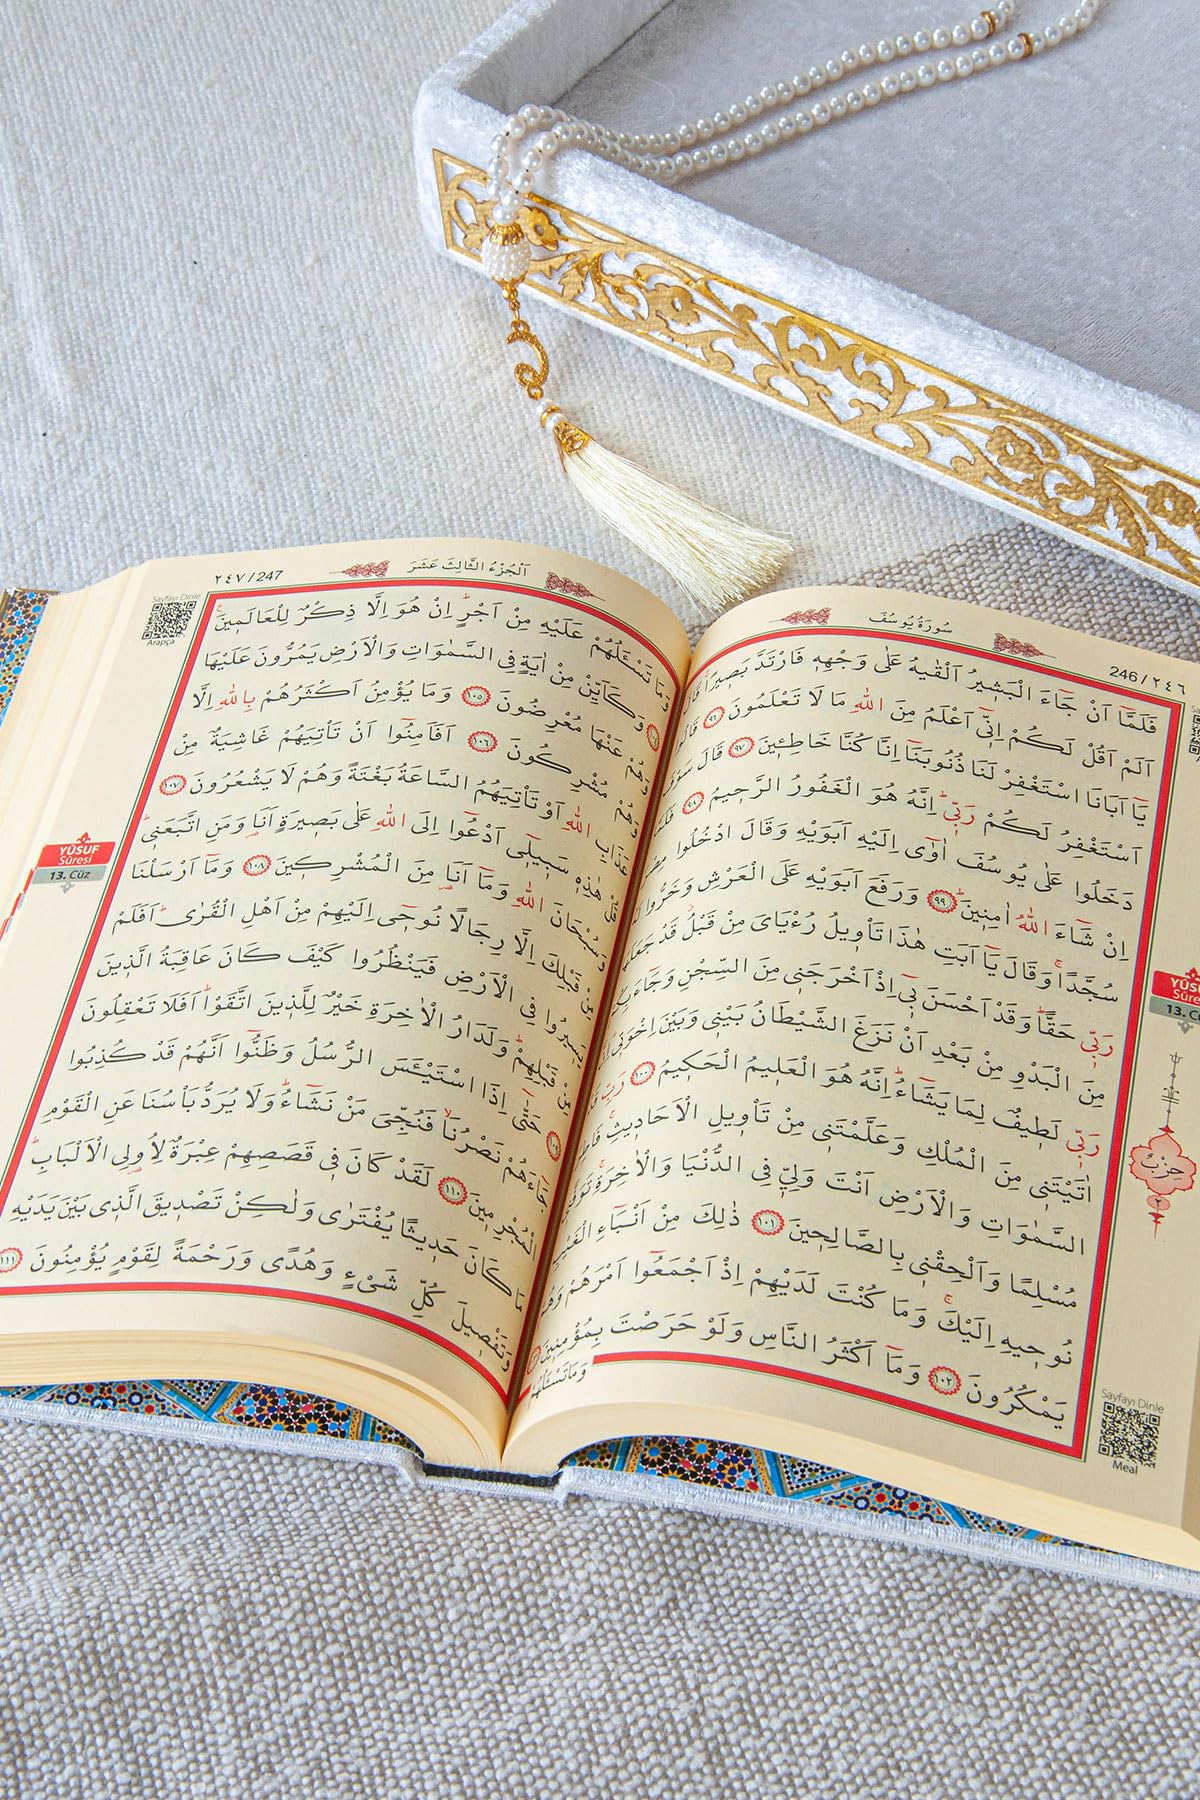 246 / ٢٤٦
سُورَةُ يُوسُفَ
فَلَمَّٓا اَنْ جَٓاءَ الْبَشٖيرُ اَلْقٰيهُ عَلٰى وَجْهِهٖ فَارْتَدَّ بَصٖيرًا قَالَ
اَلَمْ اَقُلْ لَكُمْ اِنّٖٓى اَعْلَمُ مِنَ اللّٰهِ مَا لَا تَعْلَمُونَ ٩٦ قَالُوا
يَٓا اَبَانَا اسْتَغْفِرْ لَنَا ذُنُوبَنَٓا اِنَّا كُنَّا خَاطِـٖٔينَ ٩٧ قَالَ سَوْفَ
اَسْتَغْفِرُ لَكُمْ رَبّٖىؕ اِنَّهُ هُوَ الْغَفُورُ الرَّحٖيمُ ٩٨ فَلَمَّا
دَخَلُوا عَلٰى يُوسُفَ اٰوٰٓى اِلَيْهِ اَبَوَيْهِ وَقَالَ ادْخُلُوا مِصْرَ
اِنْ شَٓاءَ اللّٰهُ اٰمِنٖينَؕ ٩٩ وَرَفَعَ اَبَوَيْهِ عَلَى الْعَرْشِ وَخَرُّوا لَهُ
سُجَّدًاۚ وَقَالَ يَٓا اَبَتِ هٰذَا تَاْوٖيلُ رُءْيَاىَ مِنْ قَبْلُۘ قَدْ جَعَلَهَا
رَبّٖى حَقًّاؕ وَقَدْ اَحْسَنَ بٖٓى اِذْ اَخْرَجَنٖى مِنَ السِّجْنِ وَجَٓاءَ بِكُمْ
مِنَ الْبَدْوِ مِنْ بَعْدِ اَنْ نَزَغَ الشَّيْطَانُ بَيْنٖى وَبَيْنَ اِخْوَتٖى
رَبّٖى لَطٖيفٌ لِمَا يَشَٓاءُؕ اِنَّهُ هُوَ الْعَلٖيمُ الْحَكٖيمُ ١٠٠ رَبِّ قَدْ
اٰتَيْتَنٖى مِنَ الْمُلْكِ وَعَلَّمْتَنٖى مِنْ تَاْوٖيلِ الْاَحَادٖيثِۚ فَاطِرَ
السَّمٰوَاتِ وَالْاَرْضِ اَنْتَ وَلِيّٖ فِى الدُّنْيَا وَالْاٰخِرَةِۚ تَوَفَّنٖى
مُسْلِمًا وَاَلْحِقْنٖى بِالصَّالِحٖينَ ١٠١ ذٰلِكَ مِنْ اَنْبَٓاءِ الْغَيْبِ
نُوحٖيهِ اِلَيْكَۚ وَمَا كُنْتَ لَدَيْهِمْ اِذْ اَجْمَعُٓوا اَمْرَهُمْ وَهُمْ
يَمْكُرُونَ ١٠٢ وَمَٓا اَكْثَرُ النَّاسِ وَلَوْ حَرَصْتَ بِمُؤْمِنٖينَ
وَمَا تَسْـَٔلُهُمْ
YÛSUF
Sûresi
13. Cüz
حِزْبٌ
Sayfayı Dinle
Meal
٢٤٧ / 247
اَلْجُزْءُ الثَّالِثَ عَشَرَ
Sayfayı Dinle
Arapça
وَمَا تَسْـَٔلُهُمْ عَلَيْهِ مِنْ اَجْرٍؕ اِنْ هُوَ اِلَّا ذِكْرٌ لِلْعَالَمٖينَ۟
وَكَاَيِّنْ مِنْ اٰيَةٍ فِى السَّمٰوَاتِ وَالْاَرْضِ يَمُرُّونَ عَلَيْهَا
وَهُمْ عَنْهَا مُعْرِضُونَ ١٠٥ وَمَا يُؤْمِنُ اَكْثَرُهُمْ بِاللّٰهِ اِلَّا
وَهُمْ مُشْرِكُونَ ١٠٦ اَفَاَمِنُٓوا اَنْ تَاْتِيَهُمْ غَاشِيَةٌ مِنْ
عَذَابِ اللّٰهِ اَوْ تَاْتِيَهُمُ السَّاعَةُ بَغْتَةً وَهُمْ لَا يَشْعُرُونَ ١٠٧
قُلْ هٰذِهٖ سَبٖيلٖٓى اَدْعُٓوا اِلَى اللّٰهِ عَلٰى بَصٖيرَةٍ اَنَا۬ وَمَنِ اتَّبَعَنٖىؕ
وَسُبْحَانَ اللّٰهِ وَمَٓا اَنَا۬ مِنَ الْمُشْرِكٖينَ ١٠٨ وَمَٓا اَرْسَلْنَا
مِنْ قَبْلِكَ اِلَّا رِجَالًا نُوحٖٓى اِلَيْهِمْ مِنْ اَهْلِ الْقُرٰىؕ اَفَلَمْ
يَسٖيرُوا فِى الْاَرْضِ فَيَنْظُرُوا كَيْفَ كَانَ عَاقِبَةُ الَّذٖينَ
مِنْ قَبْلِهِمْؕ وَلَدَارُ الْاٰخِرَةِ خَيْرٌ لِلَّذٖينَ اتَّقَوْاؕ اَفَلَا تَعْقِلُونَ
حَتّٰٓى اِذَا اسْتَيْـَٔسَ الرُّسُلُ وَظَنُّٓوا اَنَّهُمْ قَدْ كُذِبُوا
جَٓاءَهُمْ نَصْرُنَاۙ فَنُجِّىَ مَنْ نَشَٓاءُؕ وَلَا يُرَدُّ بَاْسُنَا عَنِ الْقَوْمِ
الْمُجْرِمٖينَ ١١٠ لَقَدْ كَانَ فٖى قَصَصِهِمْ عِبْرَةٌ لِاُو۬لِى الْاَلْبَابِؕ
مَا كَانَ حَدٖيثًا يُفْتَرٰى وَلٰكِنْ تَصْدٖيقَ الَّذٖى بَيْنَ يَدَيْهِ
وَتَفْصٖيلَ كُلِّ شَىْءٍ وَهُدًى وَرَحْمَةً لِقَوْمٍ يُؤْمِنُونَ ١١١
YÛSUF
Sûresi
13. Cüz